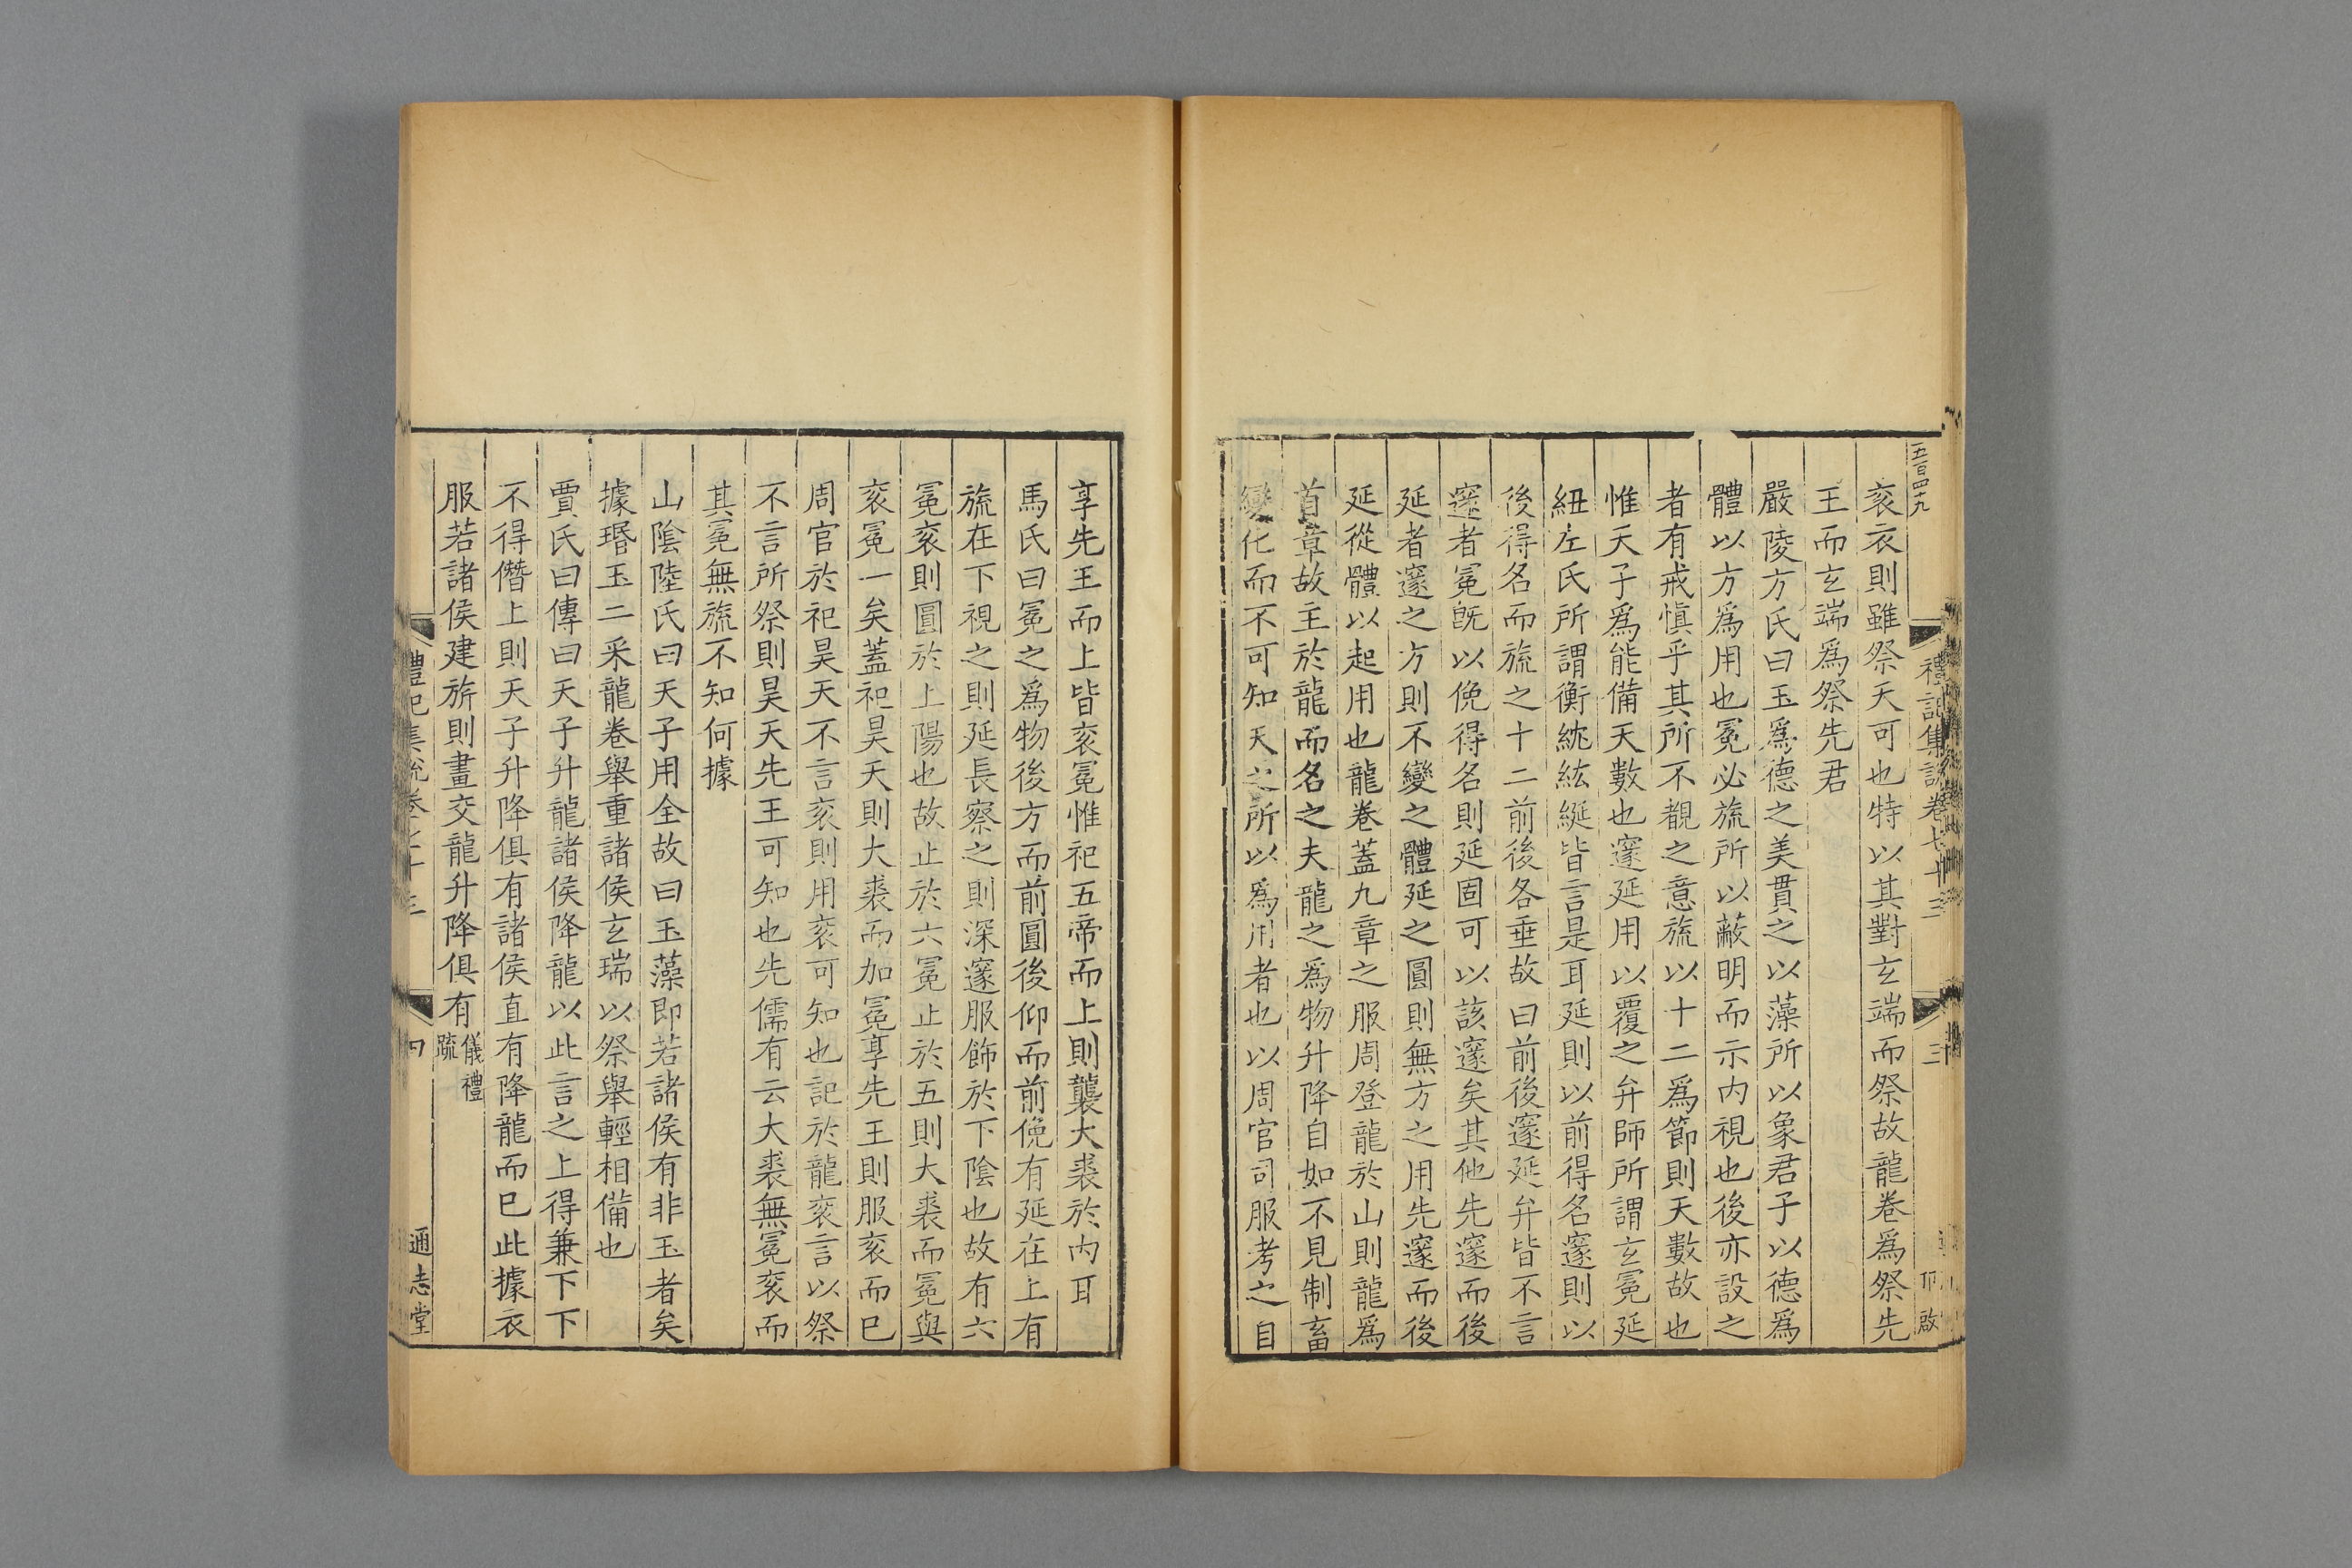 五百四十九
禮記集說卷七十三
三
卬啟
袞衣則雖祭天可也特以其對玄端而祭故龍卷爲祭先
王而玄端爲祭先君
嚴陵方氏曰玉爲德之美貫之以藻所以象君子以德爲
體以方爲用也冕必旒所以蔽明而示内視也後亦設之
者有戒愼乎其所不覩之意旒以十二爲節則天數故也
惟天子爲能備天數也邃延用以覆之弁師所謂玄冕延
紐左氏所謂衡紞紘綖皆言是耳延則以前得名邃則以
後得名而旒之十二前後各垂故曰前後邃延弁皆不言
邃者冕旣以俛得名則延固可以該邃矣其他先邃而後
延者邃之方則不變之體延之圓則無方之用先邃而後
延從體以起用也龍卷蓋九章之服周登龍於山則龍爲
首章故主於龍而名之夫龍之爲物升降自如不見制畜
變化而不可知天之所以爲用者也以周官司服考之自
享先王而上皆袞冕惟祀五帝而上則襲大裘於内耳
馬氏曰冕之爲物後方而前圓後仰而前俛有延在上有
旒在下視之則延長察之則深邃服飾於下陰也故有六
冕袞則圓於上陽也故止於六冕止於五則大裘而冕與
袞冕一矣蓋祀昊天則大裘而加冕享先王則服袞而已
周官於祀昊天不言袞則用袞可知也記於龍袞言以祭
不言所祭則昊天先王可知也先儒有云大裘無冕袞而
其冕無旒不知何據
山陰陸氏曰天子用全故曰玉藻即若諸侯有非玉者矣
據瑉玉二采龍卷舉重諸侯玄瑞以祭舉輕相備也
賈氏曰傳曰天子升龍諸侯降龍以此言之上得兼下下
不得僭上則天子升降俱有諸侯直有降龍而已此據衣
服若諸侯建旂則畫交龍升降俱有儀禮疏
禮記集說卷七十三
四
通志堂